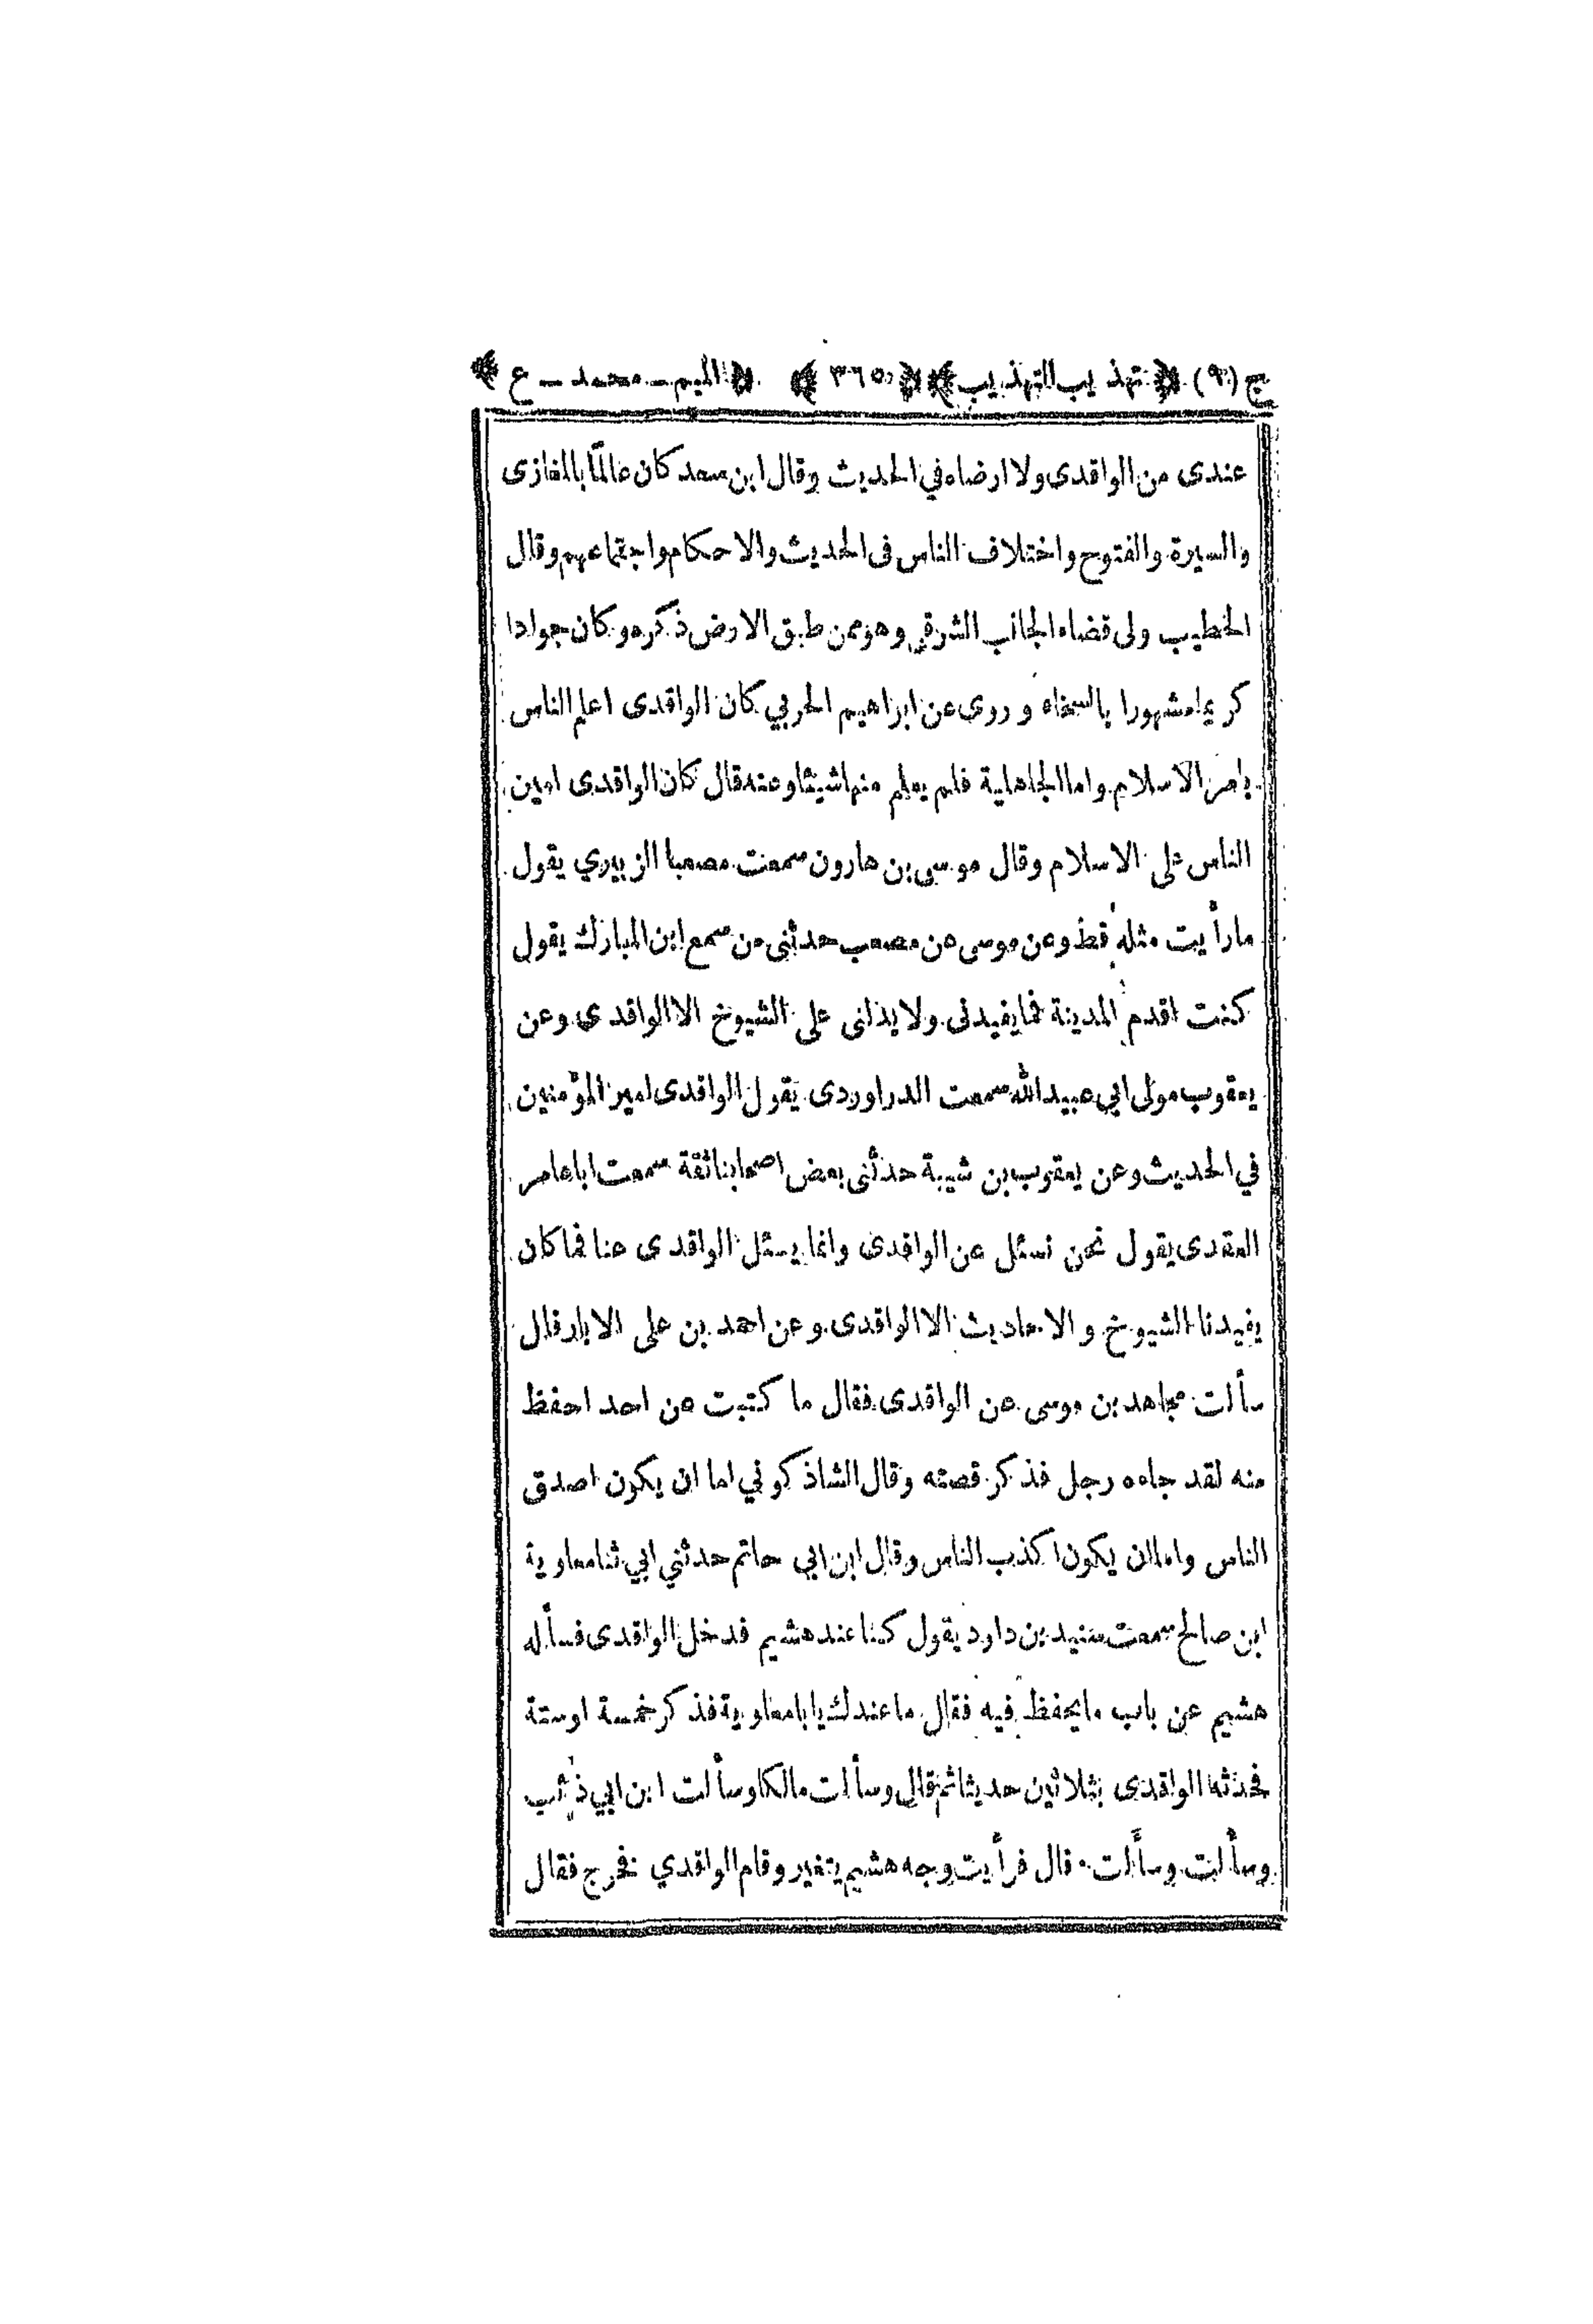 ج (٩) ﴿ تهذيب التهذيب ﴾ ﴿ ٣٦٥ ﴾ ﴿ الميم - محمد - ع ﴾
عندى من الواقدى ولا ارضاه في الحديث وقال ابن سعد كان عالمًا بالمغازى
والسيرة والفتوح واختلاف الناس فى الحديث والاحكام واجتماعهم وقال
الخطيب ولى قضاء الجانب الشرقي وهو ممن طبق الارض ذكره وكان جوادا
كريما مشهورا بالسخاء وروى عن ابراهيم الحربي كان الواقدى اعلم الناس
بامر الاسلام واما الجاهلية فلم يعلم منها شيئا وعنه قال كان الواقدى امين
الناس على الاسلام وقال موسى بن هارون سمعت مصعبا الزبيري يقول
مارأيت مثله قط وعن موسى عن مصعب حدثنى من سمع ابن المبارك يقول
كنت اقدم المدينة فما يفيدنى ولا يدلنى على الشيوخ الا الواقدى وعن
يعقوب مولى ابي عبيدالله سمعت الدراوردى يقول الواقدى امير المؤمنين
في الحديث وعن يعقوب بن شيبة حدثنى بعض اصحابنا ثقة سمعت ابا عامر
العقدى يقول نحن نسئل عن الواقدى وانما يسئل الواقدى عنا فما كان
يفيدنا الشيوخ والاحاديث الا الواقدى وعن احمد بن على الابار قال
سألت مجاهد بن موسى عن الواقدى فقال ما كتبت عن احد احفظ
منه لقد جاءه رجل فذكر قصته وقال الشاذكوني اما ان يكون اصدق
الناس واما ان يكون اكذب الناس وقال ابن ابي حاتم حدثني ابي ثنا معاوية
ابن صالح سمعت سنيد بن داود يقول كنا عند هشيم فدخل الواقدى فسأله
هشيم عن باب ما يحفظ فيه فقال ما عندك يا ابا معاوية فذكر خمسة اوستة
فحدثه الواقدى بثلاثين حديثا ثم قال وسألت مالكا وسألت ابن ابي ذئب
وسألت وسألت · قال فرأيت وجه هشيم يتغير وقام الواقدي فخرج فقال